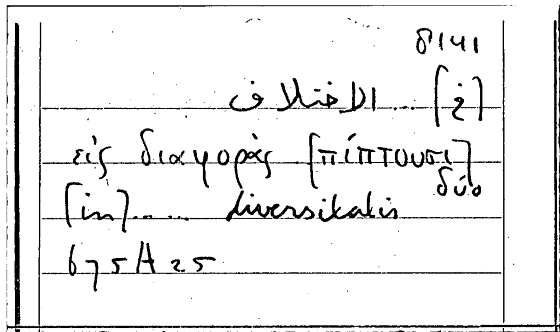 8141
[في] ... الاختلاف
εἰς διαφορὰς [πίπτουσι]
δύο
[in] ..... diversitatis
675A25